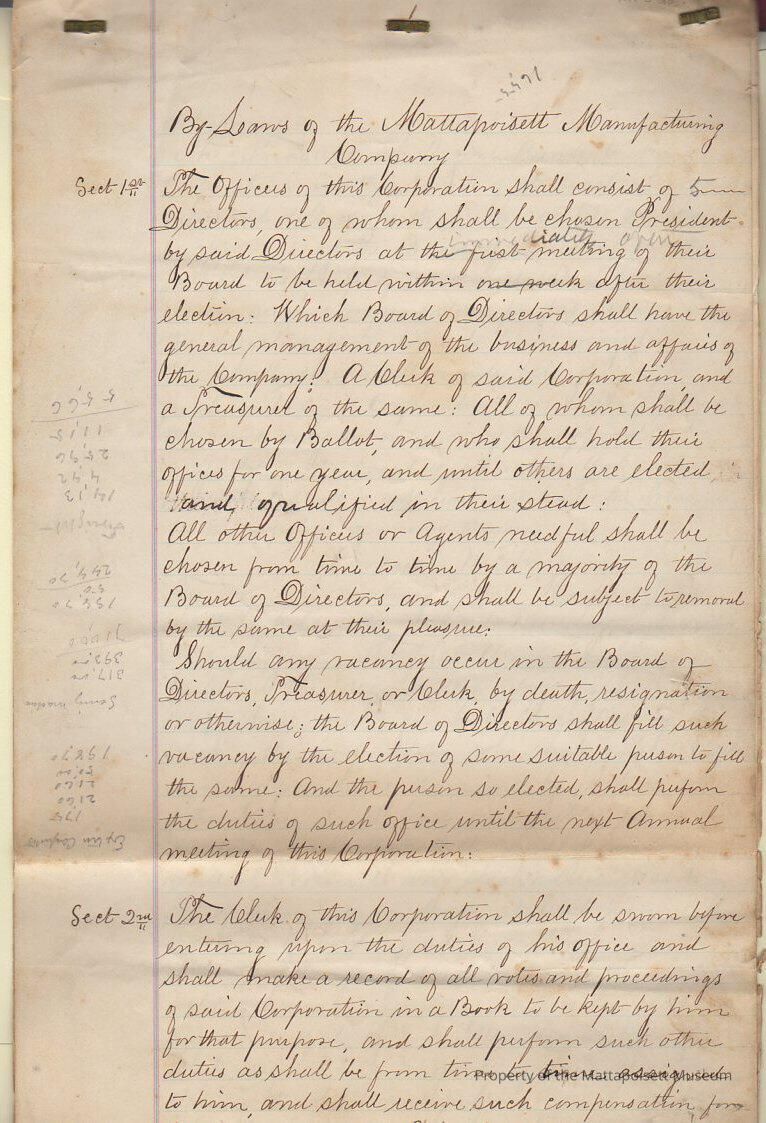 By-Laws of the Mattapoisett Manufacturing
Company
Sect 1st The Officers of this Corporation shall consist of 5
Directors, one of whom shall be chosen President
immediately upon
by said Directors at the first meeting of their
Board to be held within one week after their
election: Which Board of Directors shall have the
general management of the business and affairs of
the Company: A Clerk of said Corporation, and
a Treasurer of the same: All of whom shall be
chosen by Ballot, and who shall hold their
offices for one year, and until others are elected
and qualified in their stead:
All other Officers or Agents needful shall be
chosen from time to time by a majority of the
Board of Directors, and shall be subject to removal
by the same at their pleasure:
Should any vacancy occur in the Board of
Directors, Treasurer, or Clerk, by death, resignation
or otherwise; the Board of Directors shall fill such
vacancy by the election of some suitable person to fill
the same: And the person so elected, shall perform
the duties of such office until the next Annual
meeting of this Corporation:
Sect 2nd The Clerk of this Corporation shall be sworn before
entering upon the duties of his office and
shall make a record of all votes and proceedings
of said Corporation in a Book to be kept by him
for that purpose, and shall perform such other
duties as shall be from time to time assigned
to him, and shall receive such compensation, for
Property of the Mattapoisett Museum